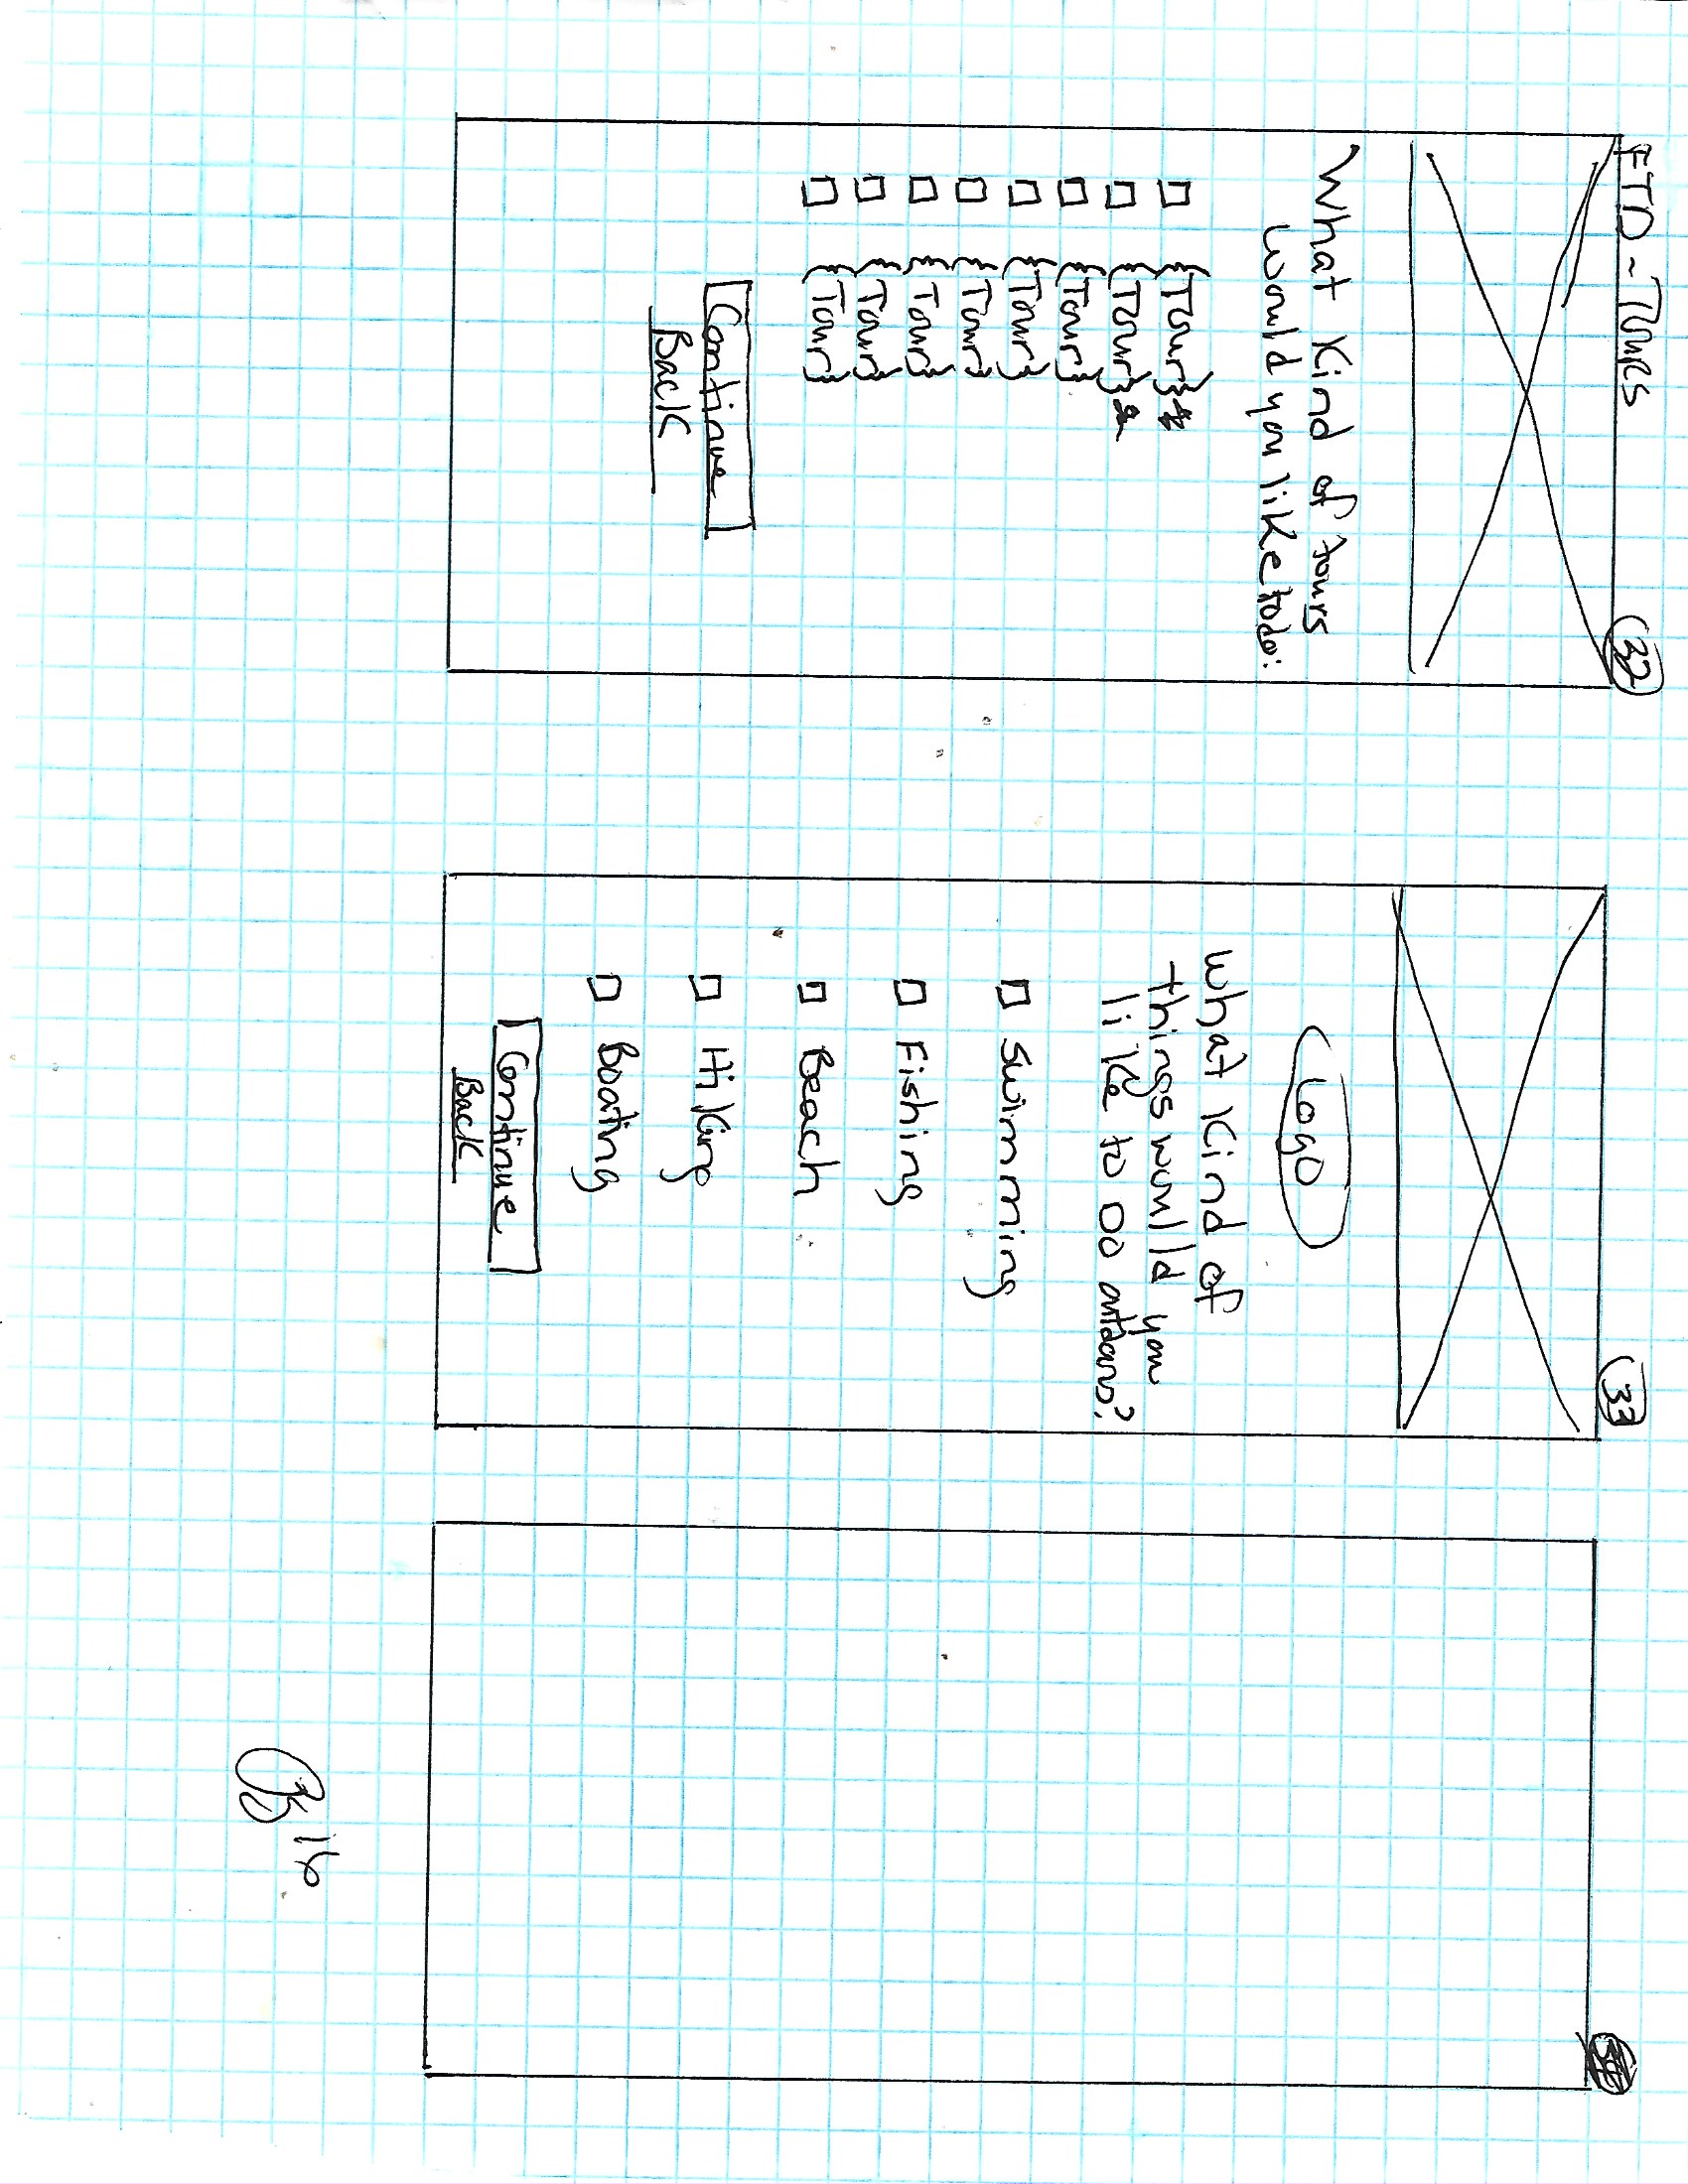 FTD - Tours
32
What Kind of tours
would you like to do:
{Tour}
{Tour}
{Tour}
{Tour}
{Tour}
{Tour}
{Tour}
{Tour}
Continue
Back
33
Logo
What Kind of
things would you
like to Do outdoors?
Swimming
Fishing
Beach
Hiking
Boating
Continue
Back